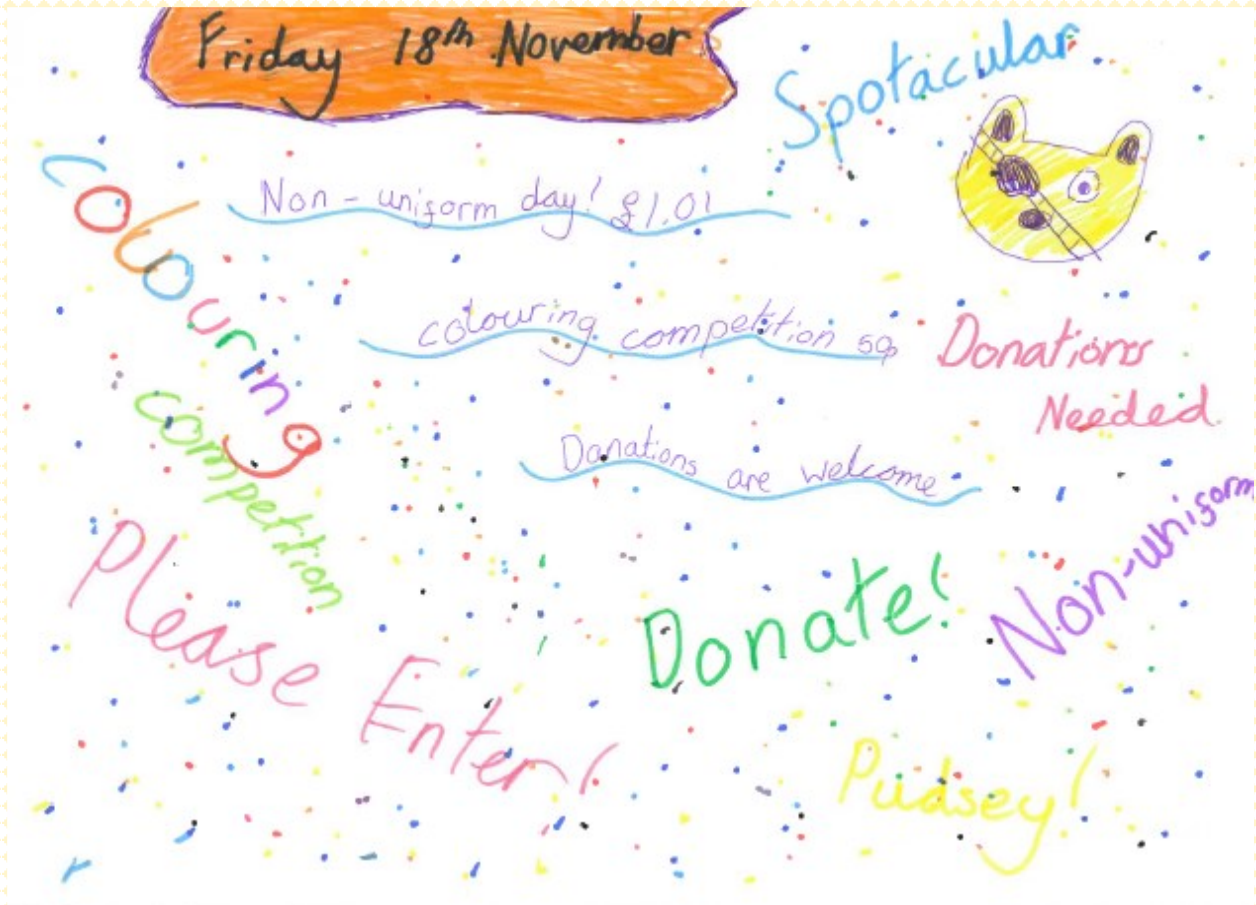 Friday 18th November
Spotacular
Non-uniform day! £1.01
colouring competition 50p
Donations are welcome
Colouring
competition
Please Enter!
Donations
Needed
Donate!
Non-uniform
Pudsey!